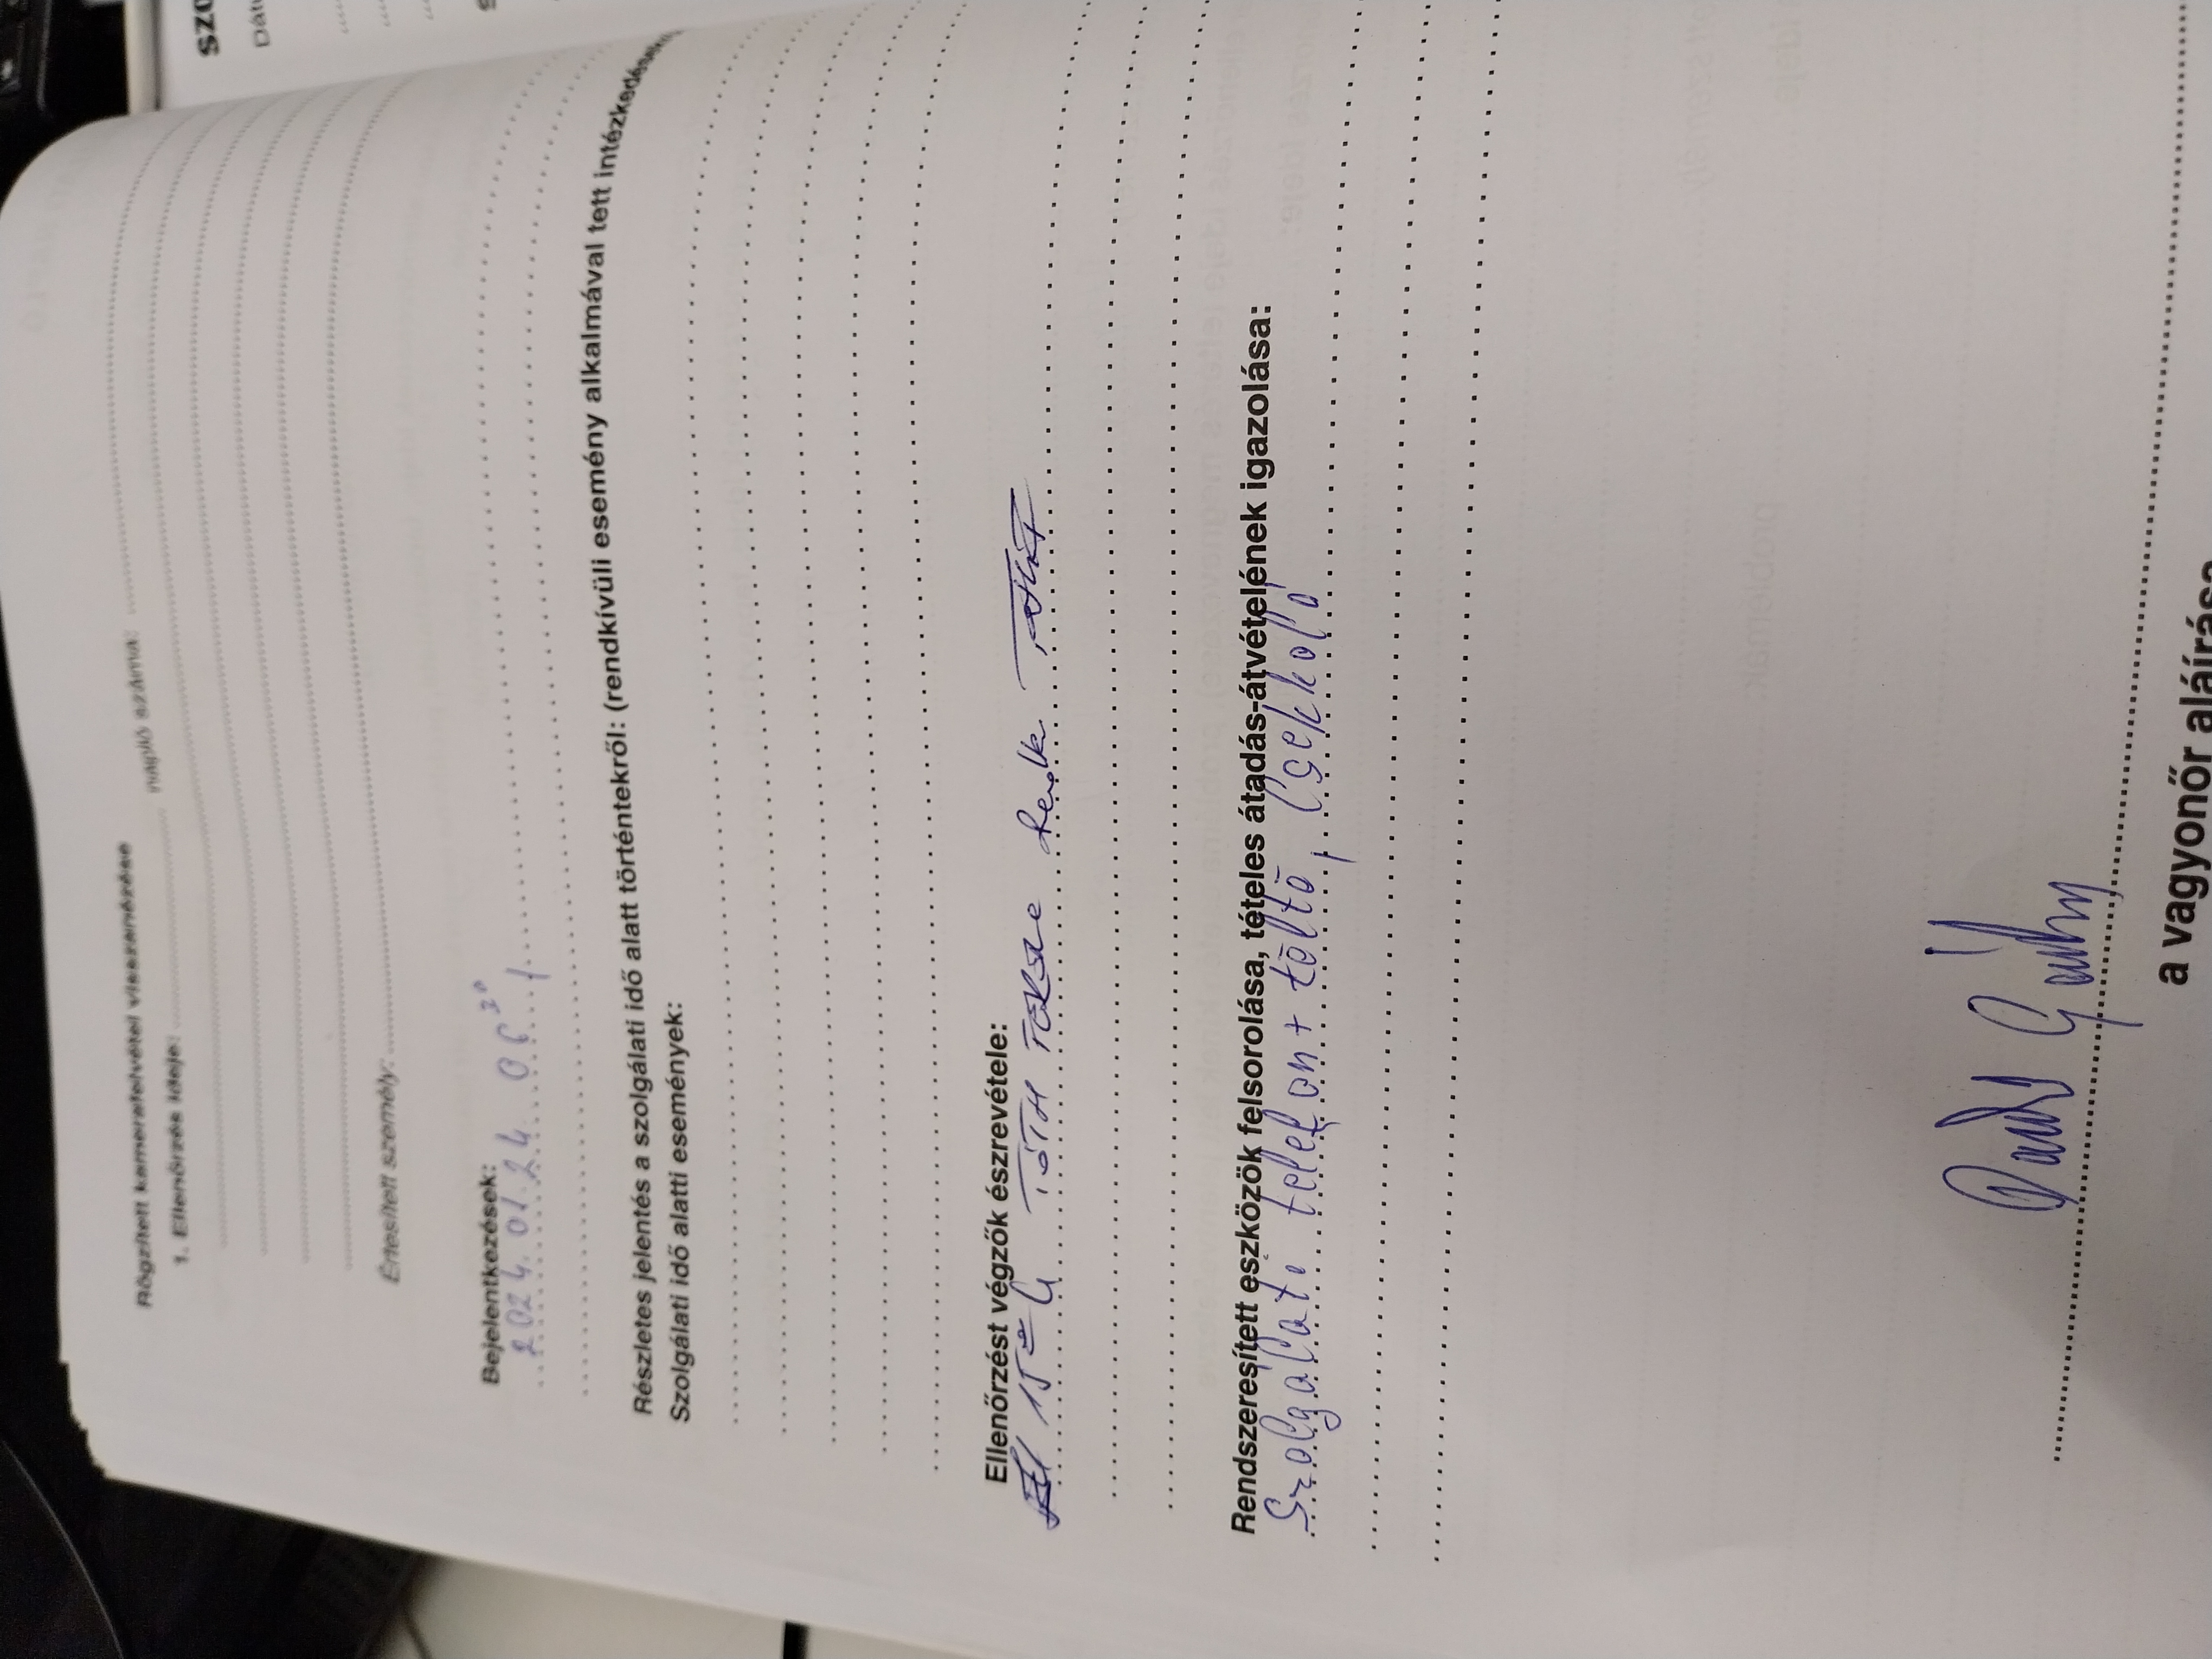 Rögzített kamerafelvétel visszanézése
1. Ellenőrzés ideje: napló száma:
Értesített személy:
Bejelentkezések:
2024.01.24. 06³⁰
Részletes jelentés a szolgálati idő alatt történtekről: (rendkívüli esemény alkalmával tett intézkedések)
Szolgálati idő alatti események:
Ellenőrzést végzők észrevétele:
TÓTH
Rendszeresített eszközök felsorolása, tételes átadás-átvételének igazolása:
Szolgálati telefon + töltő, Csekkoló
a vagyonőr aláírása
szo
Dátu